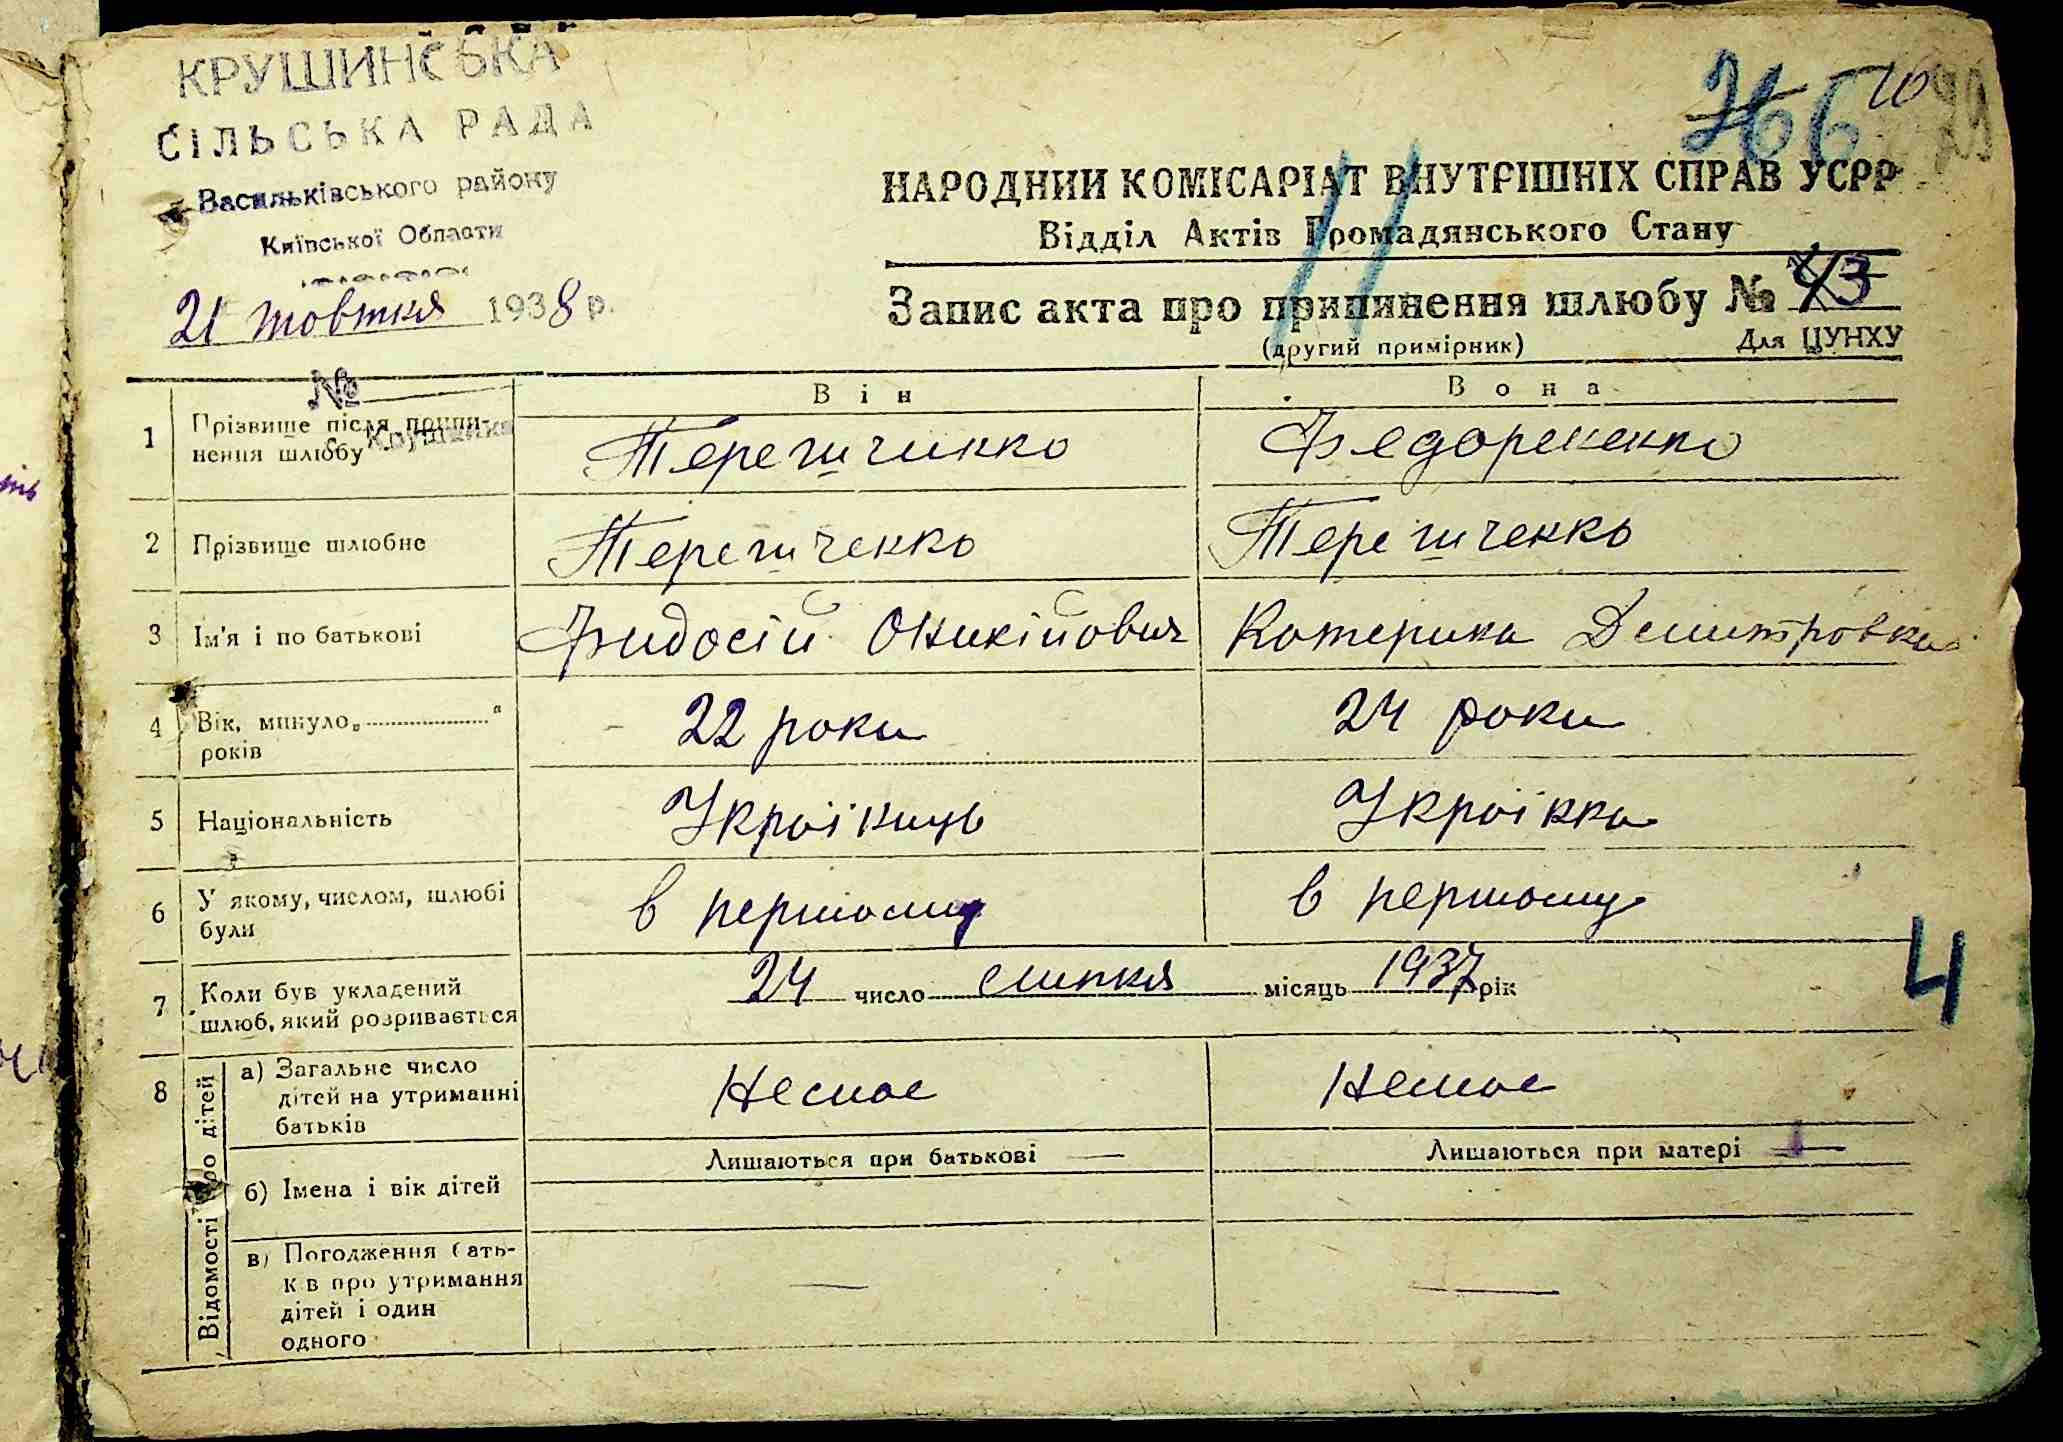 КРУШИНСЬКА
СІЛЬСЬКА РАДА
Васильківського району
Київської Области
21 жовтня 1938 р.
66
10
11
НАРОДНИЙ КОМІСАРІАТ ВНУТРІШНІХ СПРАВ УСРР
Відділ Актів Громадянського Стану
Запис акта про припинення шлюбу № 43
(другий примірник) Для ЦУНХУ
№
Він Вона
1 Прізвище після припи-
нення шлюбу Терещинко Федорененко
2 Прізвище шлюбне Терещенко Терещенко
3 Ім'я і по батькові Фидосій Оникійович Катерина Демитровна
4 Вік, минуло „ “ років 22 роки 24 роки
5 Національність Українць Українка
6 У якому, числом, шлюбі були в першому в першому
7 Коли був укладений
шлюб, який розривається 24 число липня місяць 1937 рік
4
8 Відомості про дітей
а) Загальне число
дітей на утриманні
батьків Немає Немає
Лишаються при батькові — Лишаються при матері —
б) Імена і вік дітей
в) Погодження бать-
ків про утримання
дітей і один
одного — —